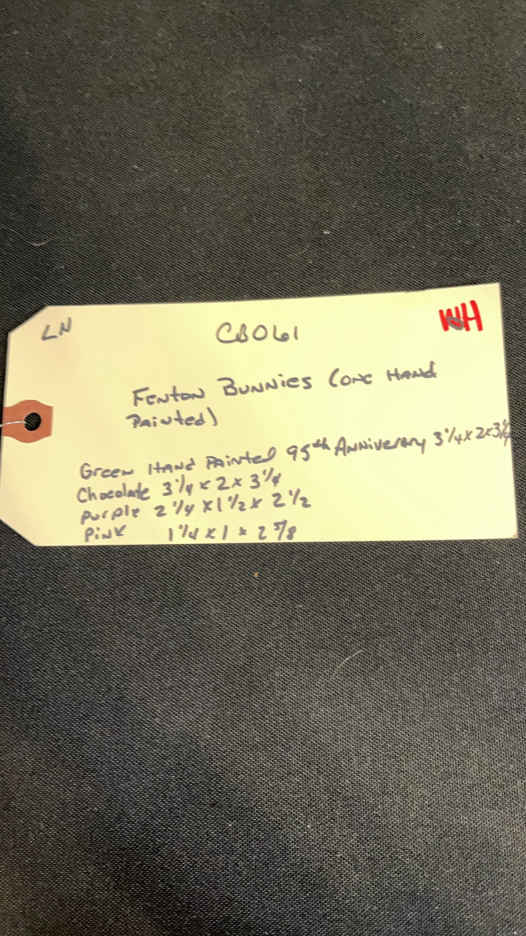 LN CB061 WH
Fenton Bunnies (one Hand
Painted)
Green Hand Painted 95th Anniversary 3 1/4 x 2 x 3 1/4
Chocolate 3 1/4 x 2 x 3 1/4
Purple 2 1/4 x 1 1/2 x 2 1/2
Pink 1 1/4 x 1 x 2 7/8